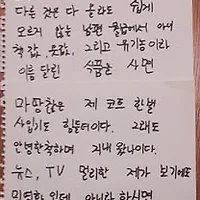 다른 것은 다 올라도 쉽게
오르지 않는 남편 월급에서 아이
책값, 옷값, 그리고 유기농이라
이름 달린 식품을 사면
마땅찮은 제 코트 한벌
사입기도 힘들더이다. 그래도
안녕한척하며 지내 왔나이다.
뉴스, TV 멀리한 제가 보기에도
아니라 하시면